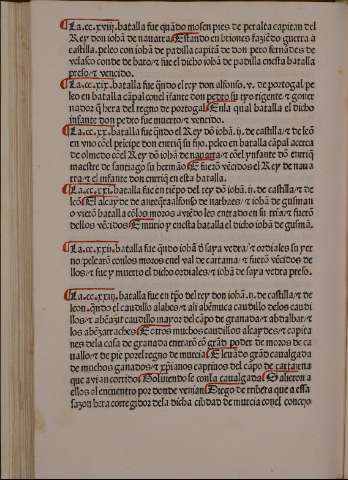 La.cc.xviij.batalla fue quãdo mosen pies de peralta capitan del
Rey don iohã de nauarra Estando en briones faziẽdo guerra a
castilla.peleo con iohã de padilla capitã de don pero fernãdes de
velasco conde de haro/& fue el dicho iohã de padilla enesta batalla
preso/& vencido.
La.cc.xix.batalla fue quñdo el rey don alfonso.v. de portogal.pe
leo en batalla cãpal conel ifante don pedro su tyo rigente/& gouer
nador q̃ hera del regno de portogal Enla qual batalla el dicho
infante don pedro fue muerto/& vencido.
La.cc.xx.batalla fue qñdo el Rey dõ iohã.ij. de castilla/& de leõ
en vno cõel principe don enrriq̃ su fijo.peleo en batalla cãpal acerca
de olmedo cõel Rey dõ iohã de nauarra/& cõel ynfante dõ enrriq̃
maestre de santiago su hermãо Efuerõ vẽcidos el Rey de naua
rra/& el infante don enrriq̃ en esta batalla.
La.cc.xxi.batalla fue en tiẽpo del rey dõ iohã.ij. de castilla/& de
leõ El alcayde de anteq̃ra alfonso de narbaes/& iohã de gusman
o vierõ batalla cõlos moros aviẽdo les entrado en su trra/& fuerõ
dellos vẽcidos Emurio y enesta batalla el dicho iohã de gusmã.
La.cc.xxij.batalla fue qñdo iohã d̃ saya vedra/& ordiales su yer
no/pelearõ conlos moros enel val de cartama/& fuerõ vẽcidos de
llos/& fue y muerto el dicho ordiales/& iohã de saya vedra preso.
La.cc.xxiij.batalla fue en tpõ del rey don iohã.ij. de castilla/& de
leon.quñdo el caudillo alabes/& ali abẽmuca caudillo delos caudi
llos/& abẽazit caudillo mayor del cãpo de granada/& abdalbar/&
los abẽzarraches E otros muchos caudillos alcaydes/& capita
nes dela casa de granada entrarõ cõ grãd poder de moros de ca
uallo/& de pie por el regno de murcia E leuãdo grãd caualgada
de muchos ganados/& xp̃ianos captiuos del cãpo de cartajena
que avian corrido Boluiendo se con la caualgada Salieron a
ellos al encuentro por donde venian Diego de ribera que a essa
sazon hera corregidor dela dicha cibdad de murcia con el concejo